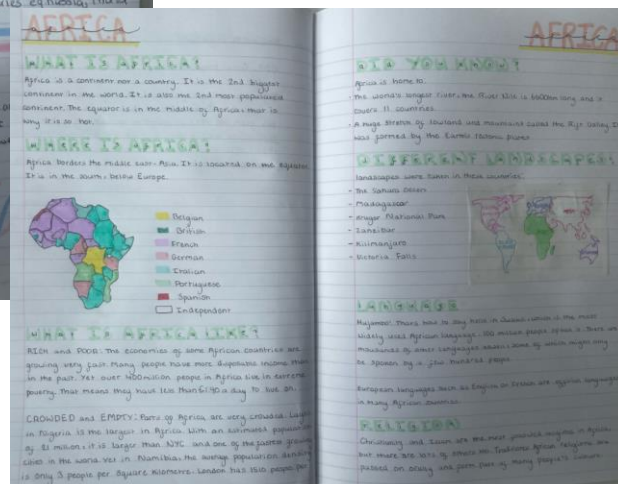 AFRICA
WHAT IS AFRICA?
Africa is a continent not a country. It is the 2nd biggest
continent in the world. It is also the 2nd most populated
continent. The equator is in the middle of Africa, that is
why it is so hot.
WHERE IS AFRICA?
Africa borders the middle east, Asia. It is located on the equator
It is in the south, below Europe.
Belgian
British
French
German
Italian
Portuguese
Spanish
Independent
WHAT IS AFRICA LIKE?
RICH and POOR: The economies of some African countries are
growing very fast. Many people have more disposable income than
in the past. Yet over 400 million people in Africa live in extreme
poverty. That means they have less than £1.40 a day to live on.
CROWDED and EMPTY: Parts of Africa are very crowded. Lagos
in Nigeria is the largest in Africa. With an estimated population
of 21 million, it is larger than NYC and one of the fastest growing
cities in the world. Yet in Namibia, the average population density
is only 3 people per square kilometre. London has 1510 people per
AFRICA
DID YOU KNOW?
Africa is home to:
- The world's longest river, the River Nile is 6600km long and it
covers 11 countries.
- A huge stretch of lowland and mountains called the Rift Valley. It
was formed by the Earth's Tectonic plates.
DIFFERENT LANDSCAPES:
landscapes were taken in these countries:
- The Sahara Desert
- Madagascar
- Kruger National Park
- Zanzibar
- Kilimanjaro
- Victoria Falls
LANGUAGE
widely used African language. 100 million people speak it. There are
thousands of other languages which some of which might only
be spoken by a few hundred people.
European languages such as English or French are official languages
in many African countries.
RELIGION
Christianity and Islam are the most practised religions in Africa,
but there are lots of others too. Traditional African religions are
passed on orally and form part of many people's culture.